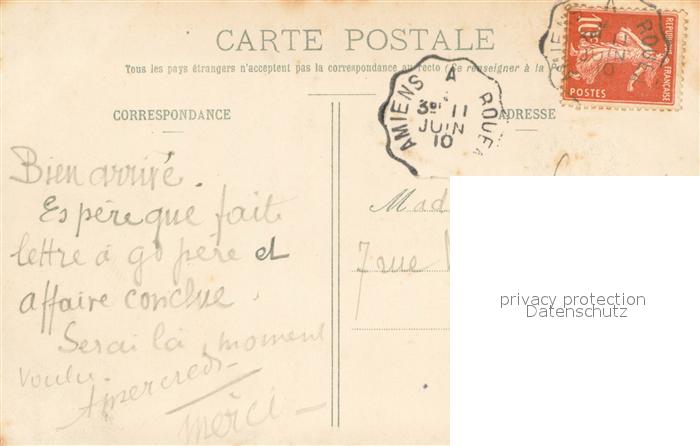 CARTE POSTALE
Tous les pays étrangers n'acceptent pas la correspondance au recto (Se renseigner à la Po
CORRESPONDANCE
ADRESSE
AMIENS A ROUE
3º 11
JUIN
10
10c
REPUBLIQUE FRANÇAISE
POSTES
Bien arrivé.
Espère que fait
lettre à gd père et
affaire conclue.
Serai là, moment
voulu.
A mercredi
merci
Mad
7 rue
privacy protection
Datenschutz